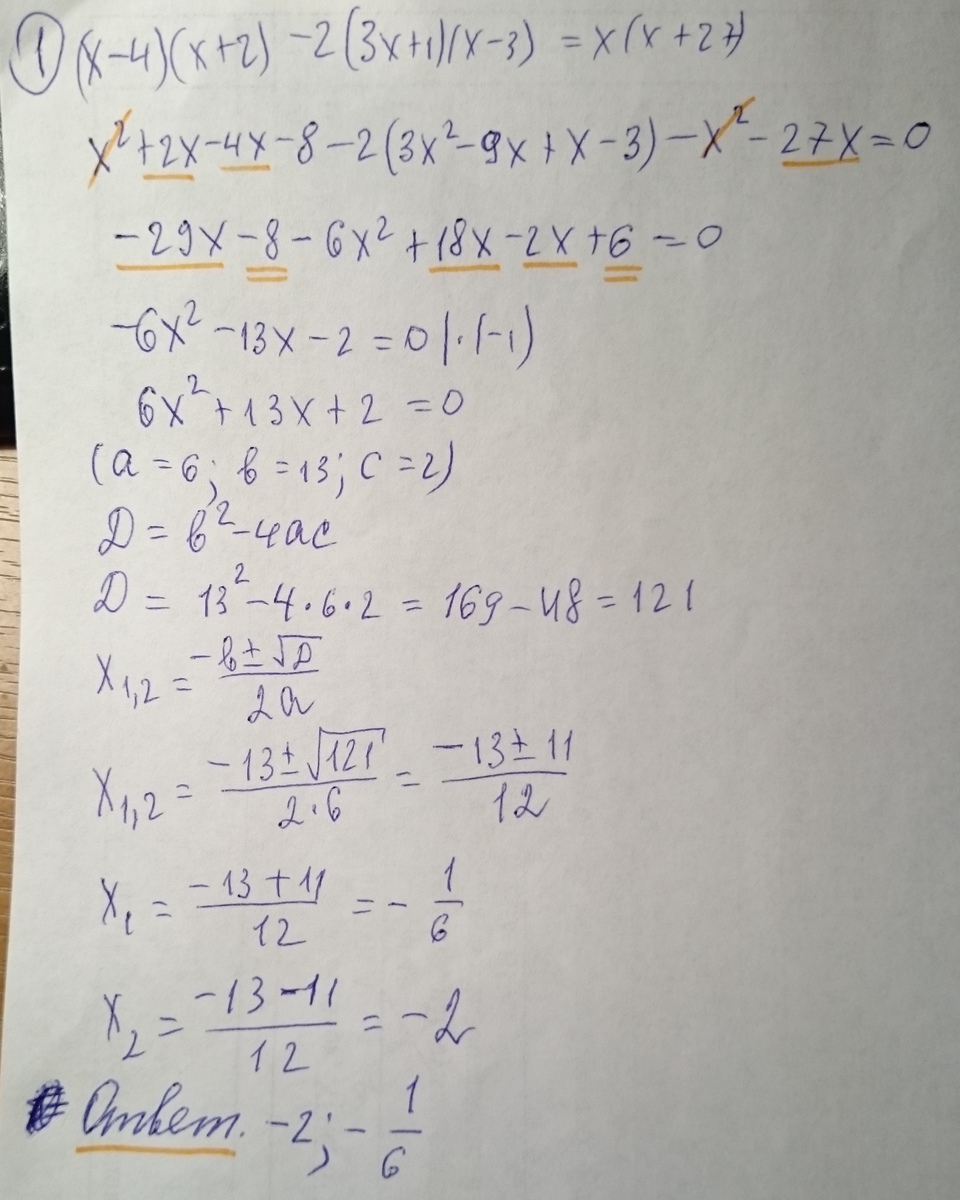 ① (x-4)(x+2) -2(3x+1)(x-3) = x(x+27)
x²+2x-4x-8-2(3x²-9x+x-3)-x²-27x=0
-29x-8-6x²+18x-2x+6=0
-6x²-13x-2=0 |·(-1)
6x²+13x+2=0
(a=6; b=13; c=2)
D=b²-4ac
D = 13²-4·6·2 = 169-48 = 121
x₁,₂ = (-b±√D)/(2a)
x₁,₂ = (-13±√121)/(2·6) = (-13±11)/12
x₁ = (-13+11)/12 = -1/6
x₂ = (-13-11)/12 = -2
Ответ. -2; -1/6